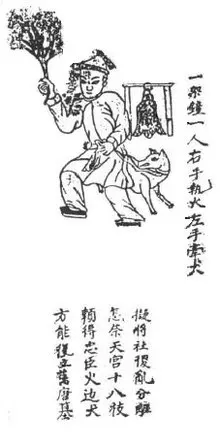 一架鐘一人右手執火左手牽犬
擬將社稷亂分離
怎奈天宮十八枝
賴得忠臣火边犬
方能復立舊唐基